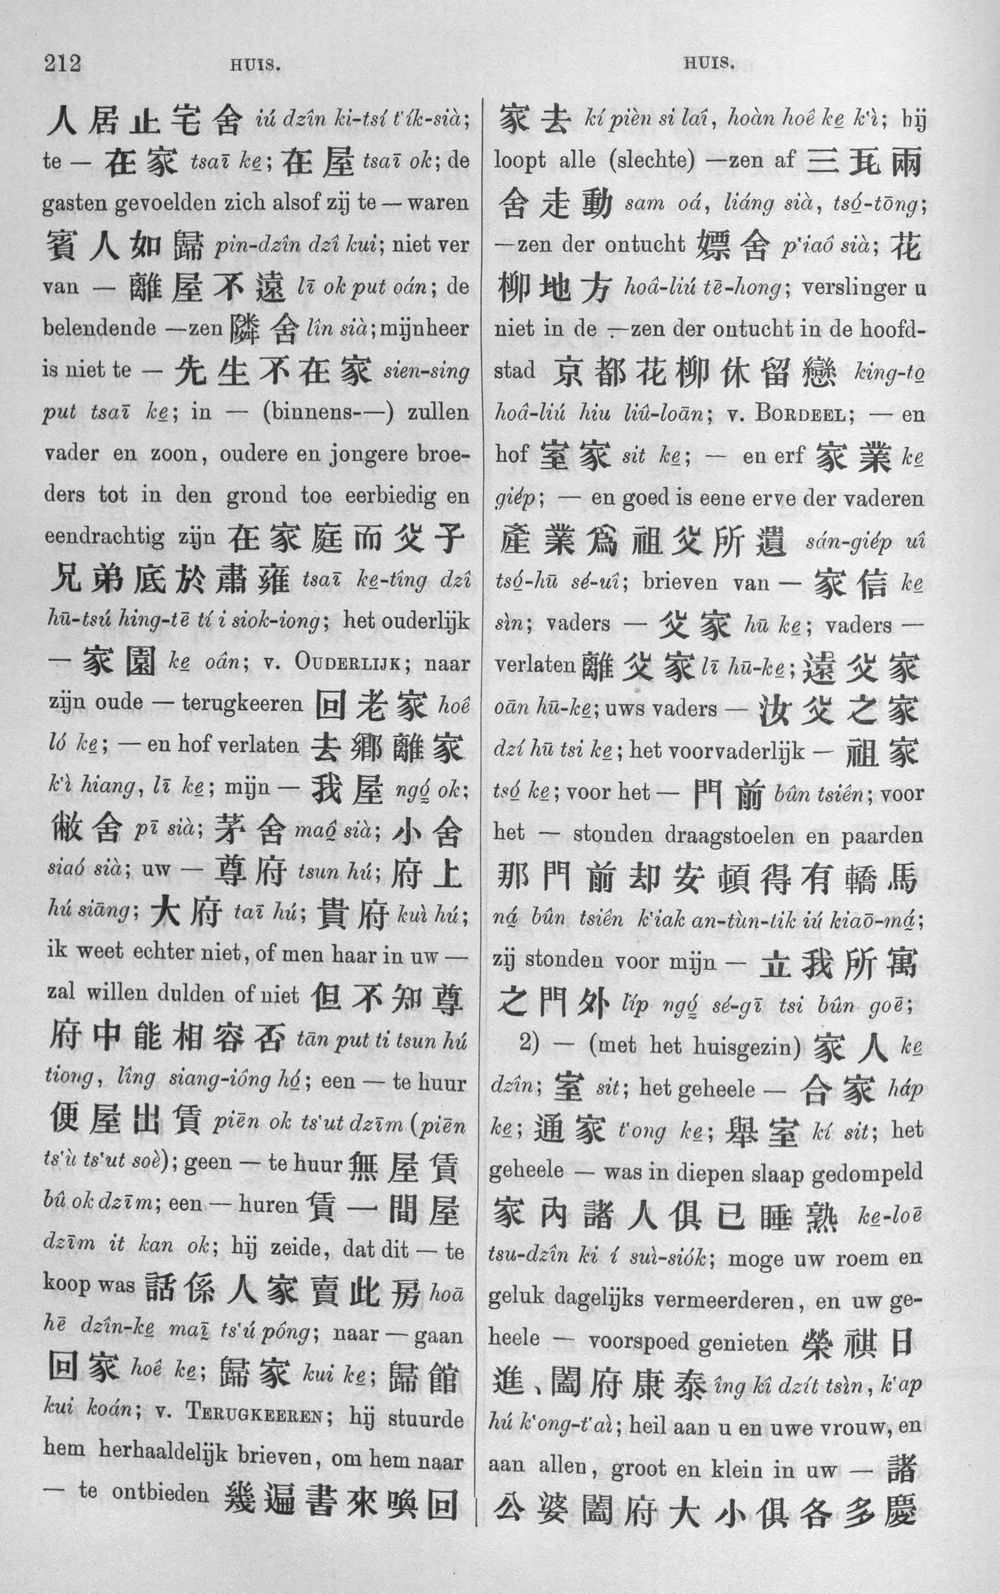 212
HUIS.
HUIS.
人居止宅舍 iú dzîn ki-tsí t'ík-sià;
te — 在家 tsaī ke̱; 在屋 tsaī ok; de
gasten gevoelden zich alsof zij te — waren
賓人如歸 pin-dzîn dzî kui; niet ver
van — 離屋不遠 lī ok put oán; de
belendende —zen 隣舍 lîn sià; mijnheer
is niet te — 先生不在家 sien-sing
put tsaī ke̱; in — (binnens-—) zullen
vader en zoon, oudere en jongere broe-
ders tot in den grond toe eerbiedig en
eendrachtig zijn 在家庭而父子
兄弟底於肅雍 tsaī ke̱-tîng dzî
hū-tsú hing-tē tí i siok-iong; het ouderlijk
— 家園 ke̱ oân; v. OUDERLIJK; naar
zijn oude — terugkeeren 回老家 hoê
ló ke̱; — en hof verlaten 去鄉離家
k'ì hiang, lī ke̱; mijn — 我屋 ngó̱ ok;
敝舍 pī sià; 茅舍 maô̱ sià; 小舍
siaó sià; uw — 尊府 tsun hú; 府上
hú siāng; 大府 taī hú; 貴府 kuì hú;
ik weet echter niet, of men haar in uw —
zal willen dulden of niet 但不知尊
府中能相容否 tān put ti tsun hú
tiong, lîng siang-iông hó̱; een — te huur
便屋出賃 piēn ok ts'ut dzīm (piēn
ts'ù ts'ut soè); geen — te huur 無屋賃
bû ok dzīm; een — huren 賃一間屋
dzīm it kan ok; hij zeide, dat dit — te
koop was 話係人家賣此房 hoā
hē dzîn-ke̱ maī̱ ts'ú pông; naar — gaan
回家 hoê ke̱; 歸家 kui ke̱; 歸館
kui koán; v. TERUGKEEREN; hij stuurde
hem herhaaldelijk brieven, om hem naar
— te ontbieden 幾遍書來喚回
家去 kí pièn si laî, hoàn hoê ke̱ k'ì; hij
loopt alle (slechte) —zen af 三瓦兩
舍走動 sam oá, liáng sià, tsó̱-tōng;
—zen der ontucht 嫖舍 p'iaô sià; 花
柳地方 hoâ-liú tē-hong; verslinger u
niet in de —zen der ontucht in de hoofd-
stad 京都花柳休留戀 king-to̱
hoâ-liú hiu liû-loān; v. BORDEEL; — en
hof 室家 sit ke̱; — en erf 家業 ke̱
giép; — en goed is eene erve der vaderen
產業爲祖父所遺 sán-giép uî
tsó̱-hū sé-uî; brieven van — 家信 ke̱
sìn; vaders — 父家 hū ke̱; vaders —
verlaten 離父家 lī hū-ke̱; 遠父家
oān hū-ke̱; uws vaders — 汝父之家
dzí hū tsi ke̱; het voorvaderlijk — 祖家
tsó̱ ke̱; voor het — 門前 bûn tsiên; voor
het — stonden draagstoelen en paarden
那門前却安頓得有轎馬
ná̱ bûn tsiên k'iak an-tùn-tik iú kiaō-má̱;
zij stonden voor mijn — 立我所寓
之門外 líp ngó̱ sé-gī tsi bûn goē;
2) — (met het huisgezin) 家人 ke̱
dzîn; 室 sit; het geheele — 合家 háp
ke̱; 通家 t'ong ke̱; 舉室 kí sit; het
geheele — was in diepen slaap gedompeld
家內諸人俱已睡熟 ke̱-loē
tsu-dzîn ki í suì-siók; moge uw roem en
geluk dagelijks vermeerderen, en uw ge-
heele — voorspoed genieten 榮祺日
進、闔府康泰 îng kî dzít tsìn, k'ap
hú k'ong-t'aì; heil aan u en uwe vrouw, en
aan allen, groot en klein in uw — 諸
公婆闔府大小俱各多慶